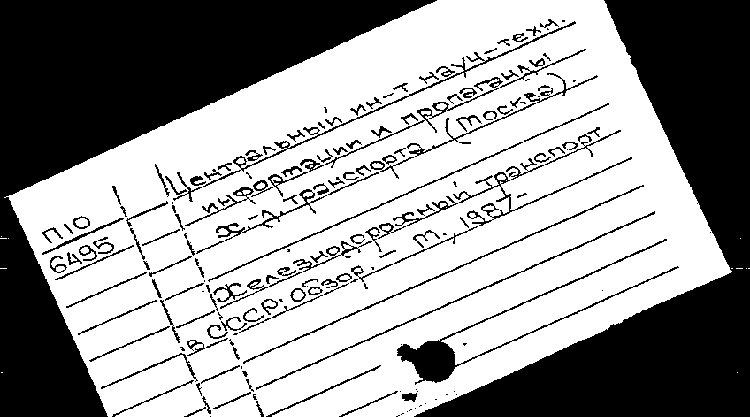 Центральный ин-т науч.-техн.
информации и пропаганды
ж.-д. транспорта. (Москва).
П10
6495
Железнодорожный транспорт
в СССР: Обзор. – М., 1987-